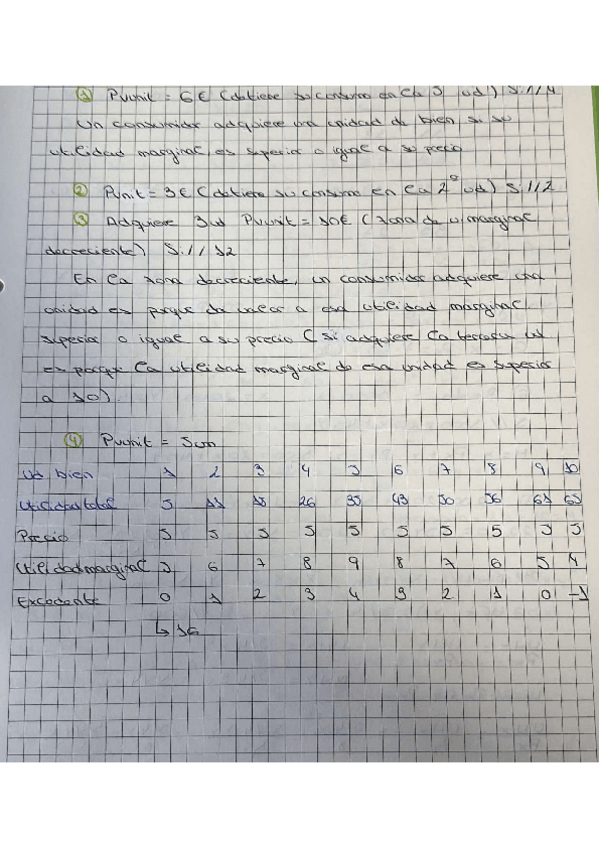 ① Pvunit = 6€ (detiene su consumo en la 5 ud) S.1/4
Un consumidor adquiere una unidad de bien si su
utilidad marginal es superior o igual a su precio
② Punit = 3€ (detiene su consumo en la 2ª ud) S.1/2
③ Adquiere 3ud Pvunit = 10€ (zona de u.marginal
decreciente) S.1/12
En la zona decreciente, un consumidor adquiere una
unidad es porque da valor a esa utilidad marginal
superior o igual a su precio (si adquiere la tercera ud
es porque la utilidad marginal de esa unidad es superior
a 10)
④ Pvunit = 5um
Ud bien 1 2 3 4 5 6 7 8 9 10
Utilidad total 5 11 18 26 35 43 50 56 61 65
Precio 5 5 5 5 5 5 5 5 5 5
Utilidad marginal 5 6 7 8 9 8 7 6 5 4
Excedente 0 1 2 3 4 3 2 1 0 -1
↳ 16